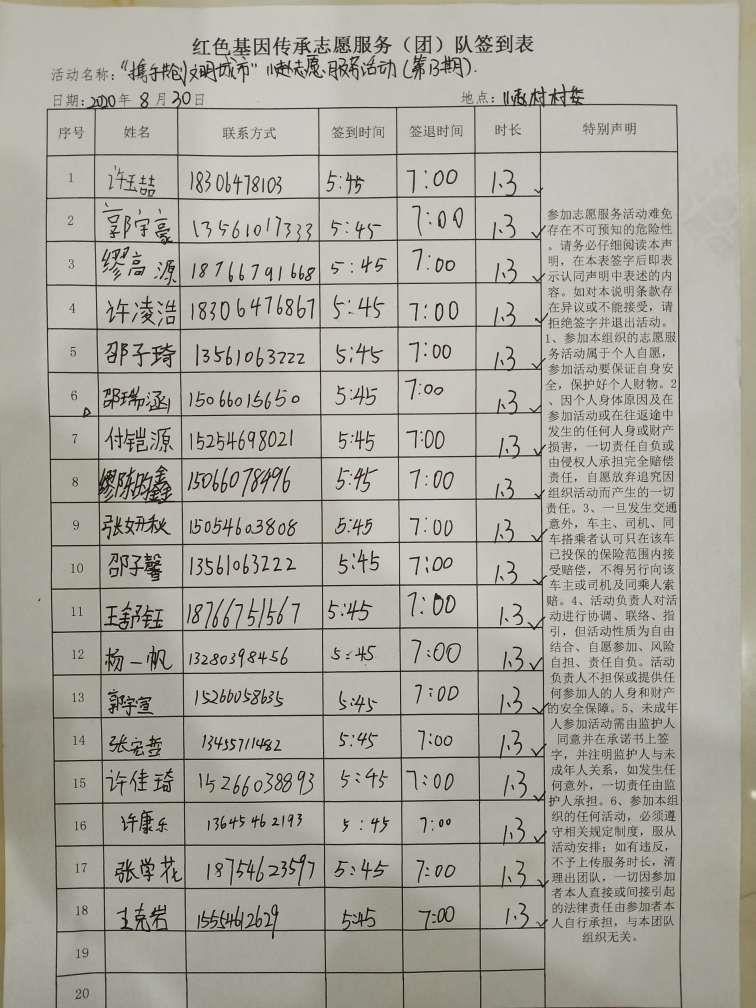 红色基因传承志愿服务（团）队签到表
活动名称：“携手共创文明城市” 志愿服务活动（第13期）.
日期：2020年 8月30日 地点：村村委
序号 姓名 联系方式 签到时间 签退时间 时长 特别声明
1 许玉喆 18306478103 5:45 7:00 1.3 ✓
2 郭宇豪 13561017333 5:45 7:00 1.3 ✓
3 缪高源 18766791668 5:45 7:00 1.3 ✓
4 许凌浩 18306476867 5:45 7:00 1.3 ✓
5 邵子琦 13561063222 5:45 7:00 1.3 ✓
6 邵瑞涵 15066015650 5:45 7:00 1.3 ✓
7 付铠源 15254698021 5:45 7:00 1.3 ✓
8 缪陈昀鑫 15066078496 5:45 7:00 1.3 ✓
9 张妞秋 15054603808 5:45 7:00 1.3 ✓
10 邵子馨 13561063222 5:45 7:00 1.3 ✓
11 王舒钰 18766751567 5:45 7:00 1.3 ✓
12 杨一帆 13280398456 5:45 7:00 1.3 ✓
13 郭宇宣 15266058635 5:45 7:00 1.3 ✓
14 张宏哲 13455711482 5:45 7:00 1.3 ✓
15 许佳琦 15266038893 5:45 7:00 1.3 ✓
16 许康乐 13645462193 5:45 7:00 1.3 ✓
17 张学花 18754623597 5:45 7:00 1.3 ✓
18 王克岩 15554612629 5:45 7:00 1.3 ✓
19
20
参加志愿服务活动难免
存在不可预知的危险性
。请务必仔细阅读本声
明，在本表签字后即表
示认同声明中表述的内
容。如对本说明条款存
在异议或不能接受，请
拒绝签字并退出活动。
1、参加本组织的志愿服
务活动属于个人自愿，
参加活动要保证自身安
全，保护好个人财物。2
、因个人身体原因及在
参加活动或在往返途中
发生的任何人身或财产
损害，一切责任自负或
由侵权人承担完全赔偿
责任，自愿放弃追究因
组织活动而产生的一切
责任。3、一旦发生交通
意外，车主、司机、同
车搭乘者认可只在该车
已投保的保险范围内接
受赔偿，不得另行向该
车主或司机及同乘人索
赔。4、活动负责人对活
动进行协调、联络、指
引，但活动性质为自由
结合、自愿参加、风险
自担、责任自负。活动
负责人不担保或提供任
何参加人的人身和财产
的安全保障。5、未成年
人参加活动需由监护人
同意并在承诺书上签
字，并注明监护人与未
成年人关系，如发生任
何意外，一切责任由监
护人承担。6、参加本组
织的任何活动，必须遵
守相关规定制度，服从
活动安排；如有违反，
不予上传服务时长，清
理出团队，一切因参加
者本人直接或间接引起
的法律责任由参加者本
人自行承担，与本团队
组织无关。